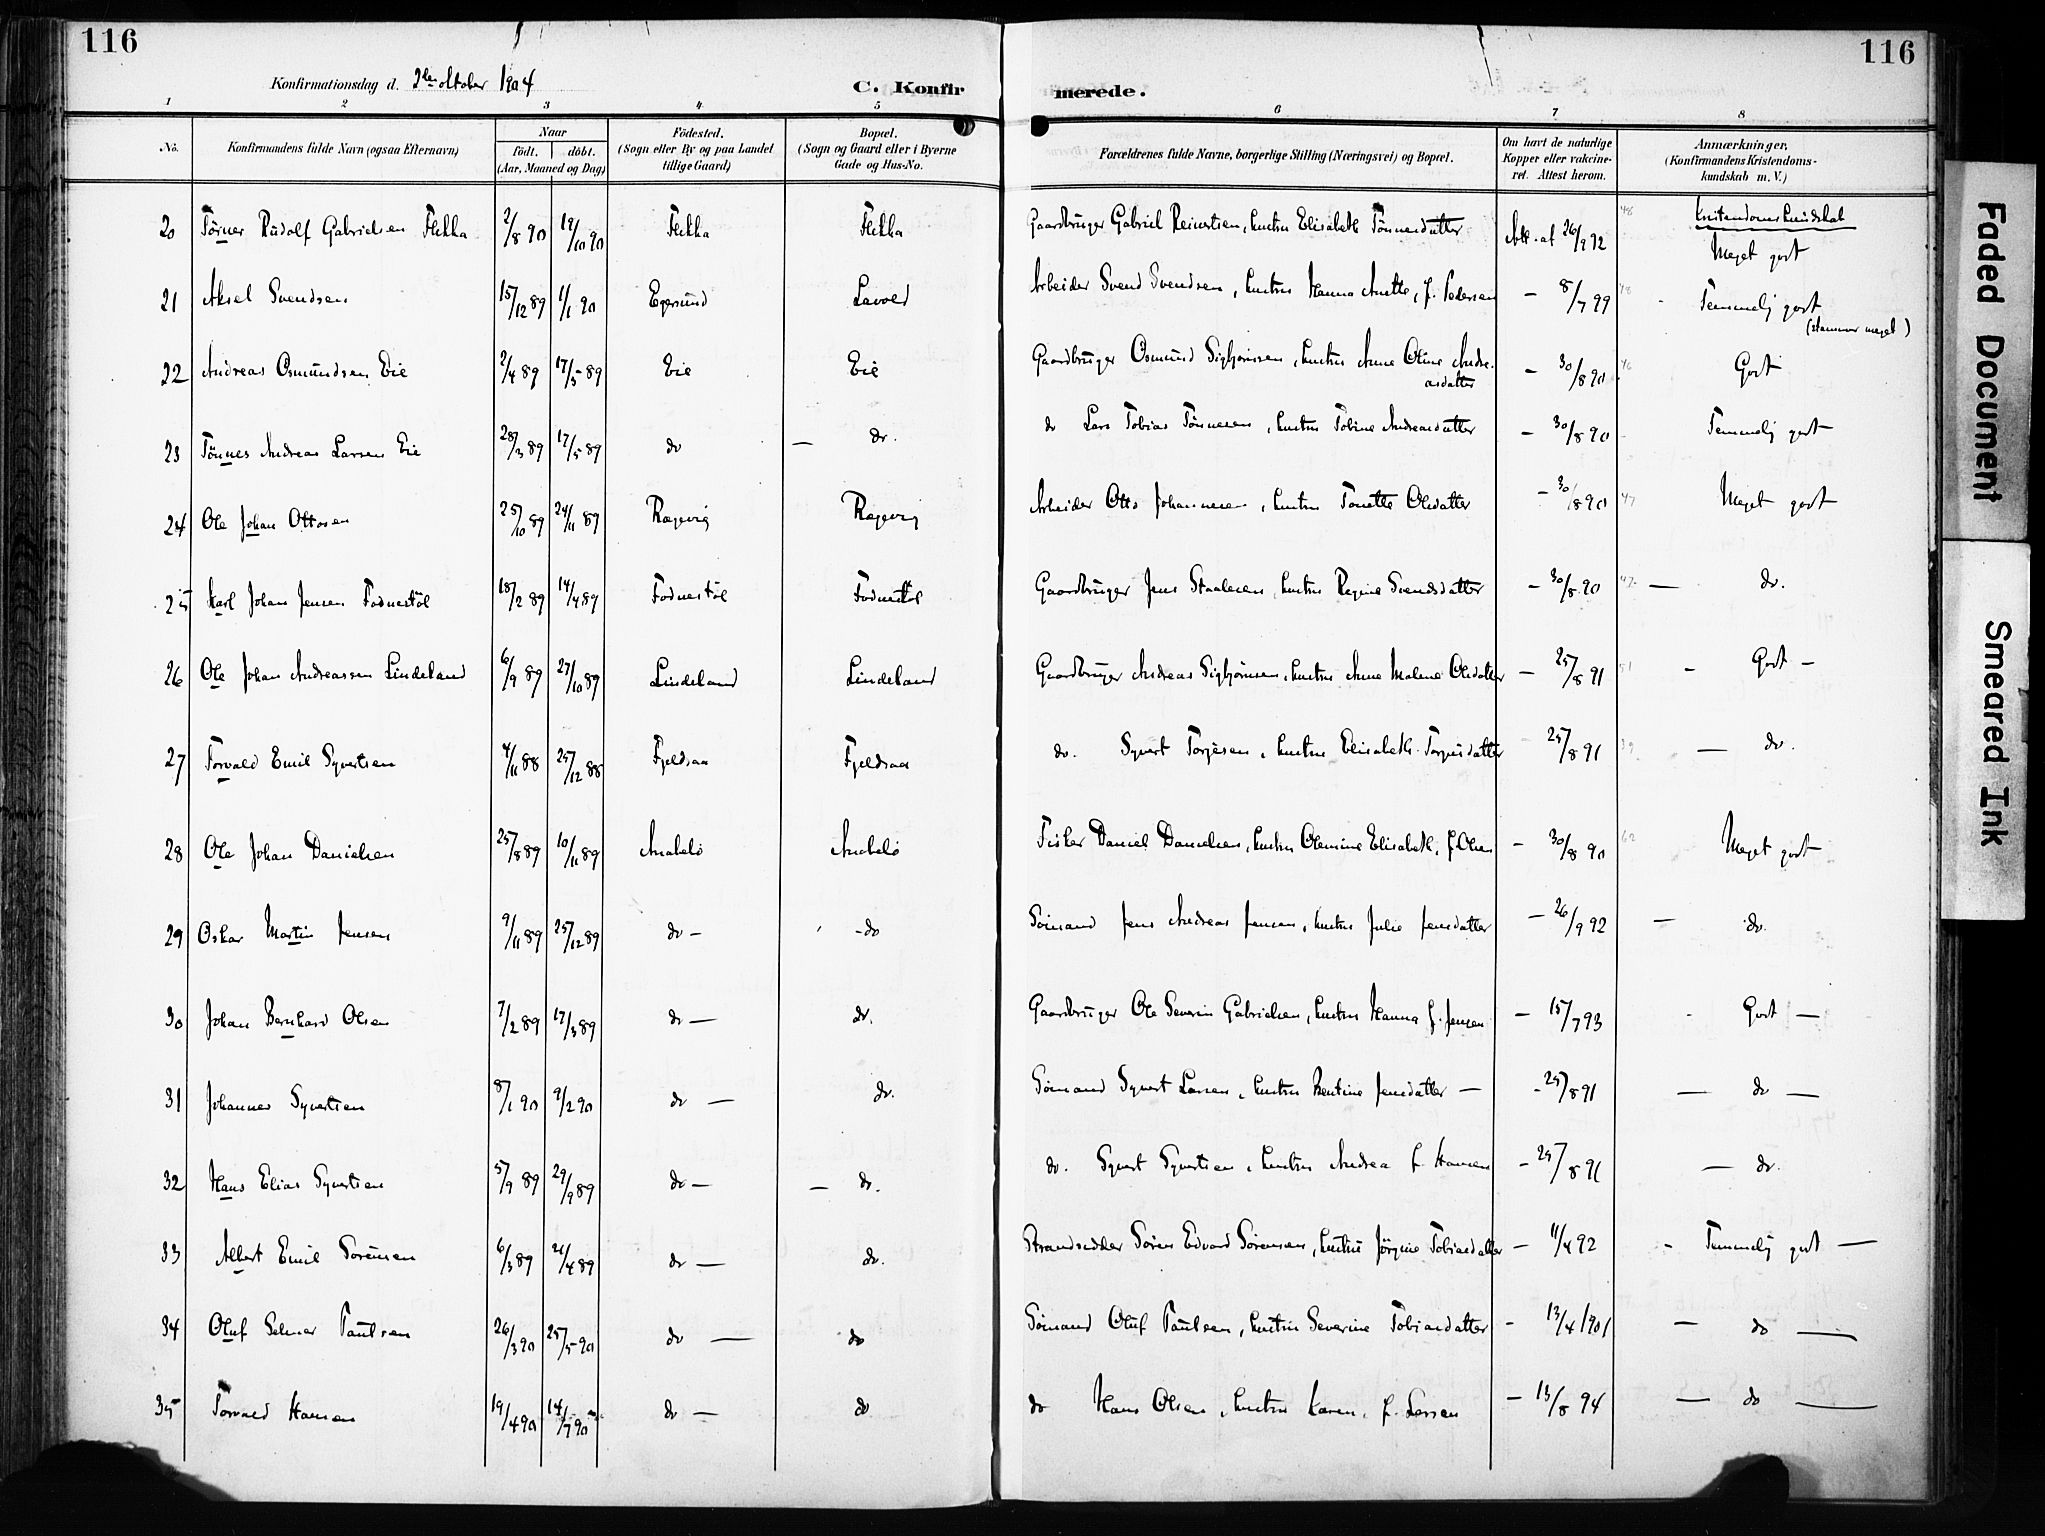 116
116
Konfirmationsdag d. 2den oktober 1904
C. Konfir
merede.
1 2 3 4 5 6 7 8
No.
Konfirmandens fulde Navn (ogsaa Efternavn)
Naar
födt. döbt.
(Aar, Maaned og Dag)
Födested.
(Sogn eller By og paa Landet
tillige Gaard)
Bopæl.
(Sogn og Gaard eller i Byerne
Gade og Hus-No.
Forældrenes fulde Navne, borgerlige Stilling (Næringsvei) og Bopæl.
Om havt de naturlige
Kopper eller vakcine-
ret. Attest herom.
Anmærkninger,
(Konfirmandens Kristendoms-
kundskab m. V.)
20 Tönner Rudolf Gabrielsen Flikka 2/8 90 19/10 90 Flikka Flikka Gaardbruger Gabriel Reinertsen, hustru Elisabeth Tönnesdatter Att. af 26/9 92 48 Kristendomskundskab
Meget godt
21 Aksel Svendsen 15/12 89 1/1 90 Egersund Lavold Arbeider Svend Svendsen, hustru Hanna Anette, f. Pedersen — 8/7 99 48 Temmelig godt
(stammer meget)
22 Andreas Osmundsen Eie 2/4 89 17/5 89 Eie Eie Gaardbruger Osmund Sigbjörnsen, hustru Anne Oline Andre-
asdatter — 30/8 90 46 Godt
23 Tönnes Andreas Larsen Eie 28/3 89 17/5 89 do — do. do Lars Tobias Tönnesen, hustru Tobine Andreasdatter — 30/8 90 Temmelig godt
24 Ole Johan Ottosen 25/10 89 24/11 89 Rægevig Rægevig Arbeider Otto Johannesen, hustru Tonette Olsdatter — 30/8 90 47 Meget godt
25 Karl Johan Jensen Fodnestöl 18/2 89 14/4 89 Fodnestöl Fodnestöl Gaardbruger Jens Staalesen, hustru Regine Svendsdatter — 30/8 90 47 — do.
26 Ole Johan Andreassen Lindeland 6/9 89 27/10 89 Lindeland Lindeland Gaardbruger Andreas Sigbjörnsen, hustru Anne Malene Olsdatter — 25/8 91 51 - Godt —
27 Torvald Emil Syvertsen 4/11 88 25/12 88 Fjeldsaa Fjeldsaa do. Syvert Torjesen, hustru Elisabeth Torgersdatter 25/8 91 39 — do.
28 Ole Johan Danielsen 25/8 89 10/11 89 Anabelö Anabelö Fisker Daniel Danielsen, hustru Olemine Elisabeth, f. Olsen — 30/8 90 62 Meget godt
29 Oskar Martin Jensen 9/11 89 25/12 89 do — - do Sömand Jens Andreas Jensen, hustru Julie Jensdatter — 26/9 92 — do.
30 Johan Bernhard Olsen 7/2 89 17/3 89 do — do. Gaardbruger Ole Severin Gabrielsen, hustru Hanna f. Jensen — 15/7 93 - Godt —
31 Johannes Syvertsen 8/1 90 9/2 90 do — do. Sömand Syvert Larsen, hustru Bentine Jensdatter — - 25/8 91 — do —
32 Hans Elias Syvertsen 5/9 89 29/9 89 do — — do. do. Syvert Syvertsen, hustru Andrea f. Hansen — 25/8 91 — do.
33 Albert Emil Sörensen 6/3 89 21/4 89 do — do. Strandsidder Sören Edvard Sörensen, hustru Jörgine Tobiasdatter — 11/4 92 - Temmelig godt —
34 Oluf Selmer Paulsen 26/3 90 25/5 90 do — do Sömand Oluf Paulsen, hustru Severine Tobiasdatter - 13/4 1901 — do —
35 Torvald Hansen 19/4 90 14/7 90 do — do do Hans Olsen, hustru Karen, f. Larsen — 13/8 94 — do —
Faded Document
Smeared Ink